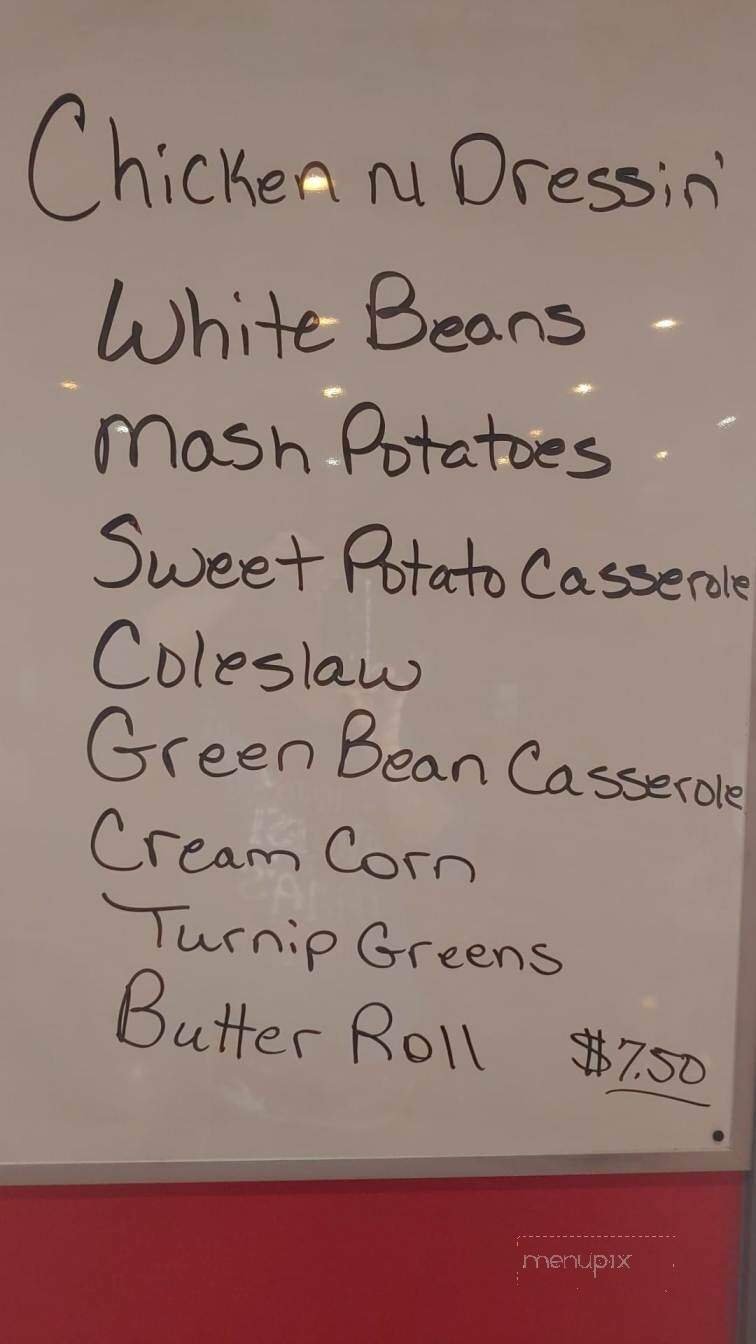 Chicken N Dressin'
White Beans
Mash Potatoes
Sweet Potato Casserole
Coleslaw
Green Bean Casserole
Cream Corn
Turnip Greens
Butter Roll $7.50
menupix